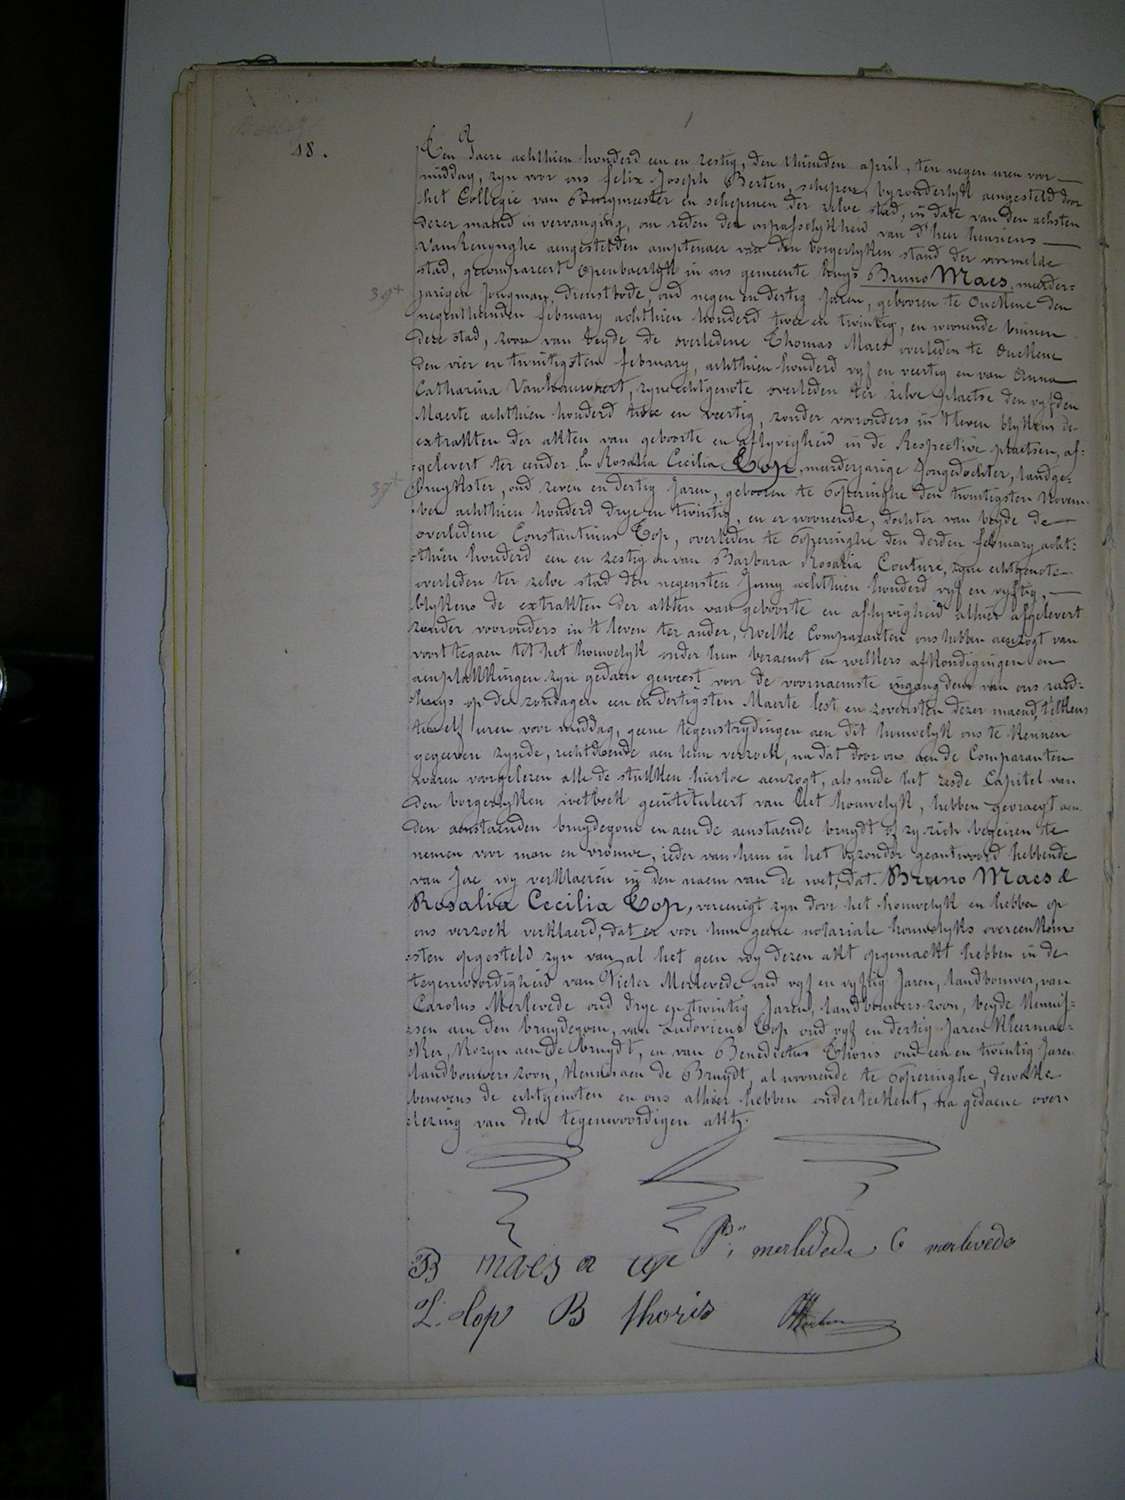 18.
Ten Jaere achthien honderd een en zestig, den thienden april, ten negen uren voor
middag, zyn voor ons felix Joseph Berten, schepen, byzonderlyk aengesteld door
het Collegie van Burgmeester en schepenen der zelve stad, in date van den achsten
dezer maend in vervanging, om reden der onpasselykheid van d'heer henricus
Vanrenynghe aengestelden amptenaer van den borgerlyken stand der voormelde
stad, gecompareert openbaerlyk in ons gemeente huys Bruno Maes, meerder=
39
jarigen Jongman, dienstbode, oud negen en dertig Jaren, gebooren te Ouckene den
negenthienden february achthien honderd twee en twintig, en woonende binnen
deze stad, zoon van beyde de overledene Thomas Maes overleden te Ouckene
den vier en twintigsten february, achthien honderd vyf en veertig en van Anna
Catharina zyne echtgenote overleden ter zelve plaetse den vyfden
Maerte achthien honderd twee en veertig, zonder voorouders in 't leven blykens de
extrakten der akten van geboorte en aflyvigheid in de Respective plaetsen, af=
gelevert ter eender, En Rosalia Cecilia Top, meerderjarige Jongedochter, landge=
37
bruykster, oud zeven en dertig Jaren, gebooren te Poperinghe den twintigsten Novem=
ber achthien honderd drye en twintig, en er woonende, dochter van beyde de
overledene Constantinus Top, overleden te Poperinghe den derden february acht=
thien honderd een en zestig en van Barbara Rosalia Couture, zyne echtgenote
overleden ter zelve stad den negensten Juny achthien honderd vyf en vyftig,
blykens de extrakten der akten van geboorte en aflyvigheid alhier afgelevert
zonder voorouders in 't leven ter ander, welke Comparanten ons hebben aenzogt van
voort tegaen tot het houwelyk onder hun beraemt en welkers afkondigingen en
aenplakkingen zyn gedaen geweest voor de voornaemste ingang deur van ons raed=
huys op de zondagen een en dertigsten Maerte lest en zevensten dezer maend, telkens
ten elf uren voor middag, geene tegenstrydingen aen dit houwelyk ons te kennen
gegeven zynde, rechtdoende aen hun verzoek, na dat door ons aen de Comparanten
waren voorgelezen alle de stukken hiertoe aenzogt, als mede het zesde Capitel van
den borgerlyken wetboek geintituleert van het houwelyk, hebben gevraegt aen
den aenstaenden bruydegom en aen de aenstaende bruydt of zy zich begeiren te
nemen voor man en vrouwe, ieder van hun in het byzonder geantwoord hebbende
van Jae wy verklaeren in den naem van de wet, dat Bruno Maes &
Rosalia Cecilia Top, vereenigt zyn door het houwelyk en hebben op
ons verzoek verklaerd, dat er voor hun geene notariale houwelyks overeenkom=
sten opgesteld zyn van al het geen wy dezen akt opgemaekt hebben in de
tegenwoordigheid van Pieter Merlevede oud vyf en vyftig Jaren, landbouwer, van
Carolus Merlevede oud drye en twintig Jaren, landbouwers zoon, beyde Kennis=
sen aen den bruydegom, van Ludovicus Top oud vyf en dertig Jaren Kleerma=
ker, Kozyn aen de bruydt, en van Benedictus Thoris oud een en twintig Jaren
landbouwers zoon, Kennis aen de Bruydt, al woonende te Poperinghe, dewelke
benevens de echtgenoten en ons alhier hebben onderteekent, na gedaene over
lezing van den tegenwoordigen akt.
B maes R top P. merlevede C merlevede
L. Top B thoris